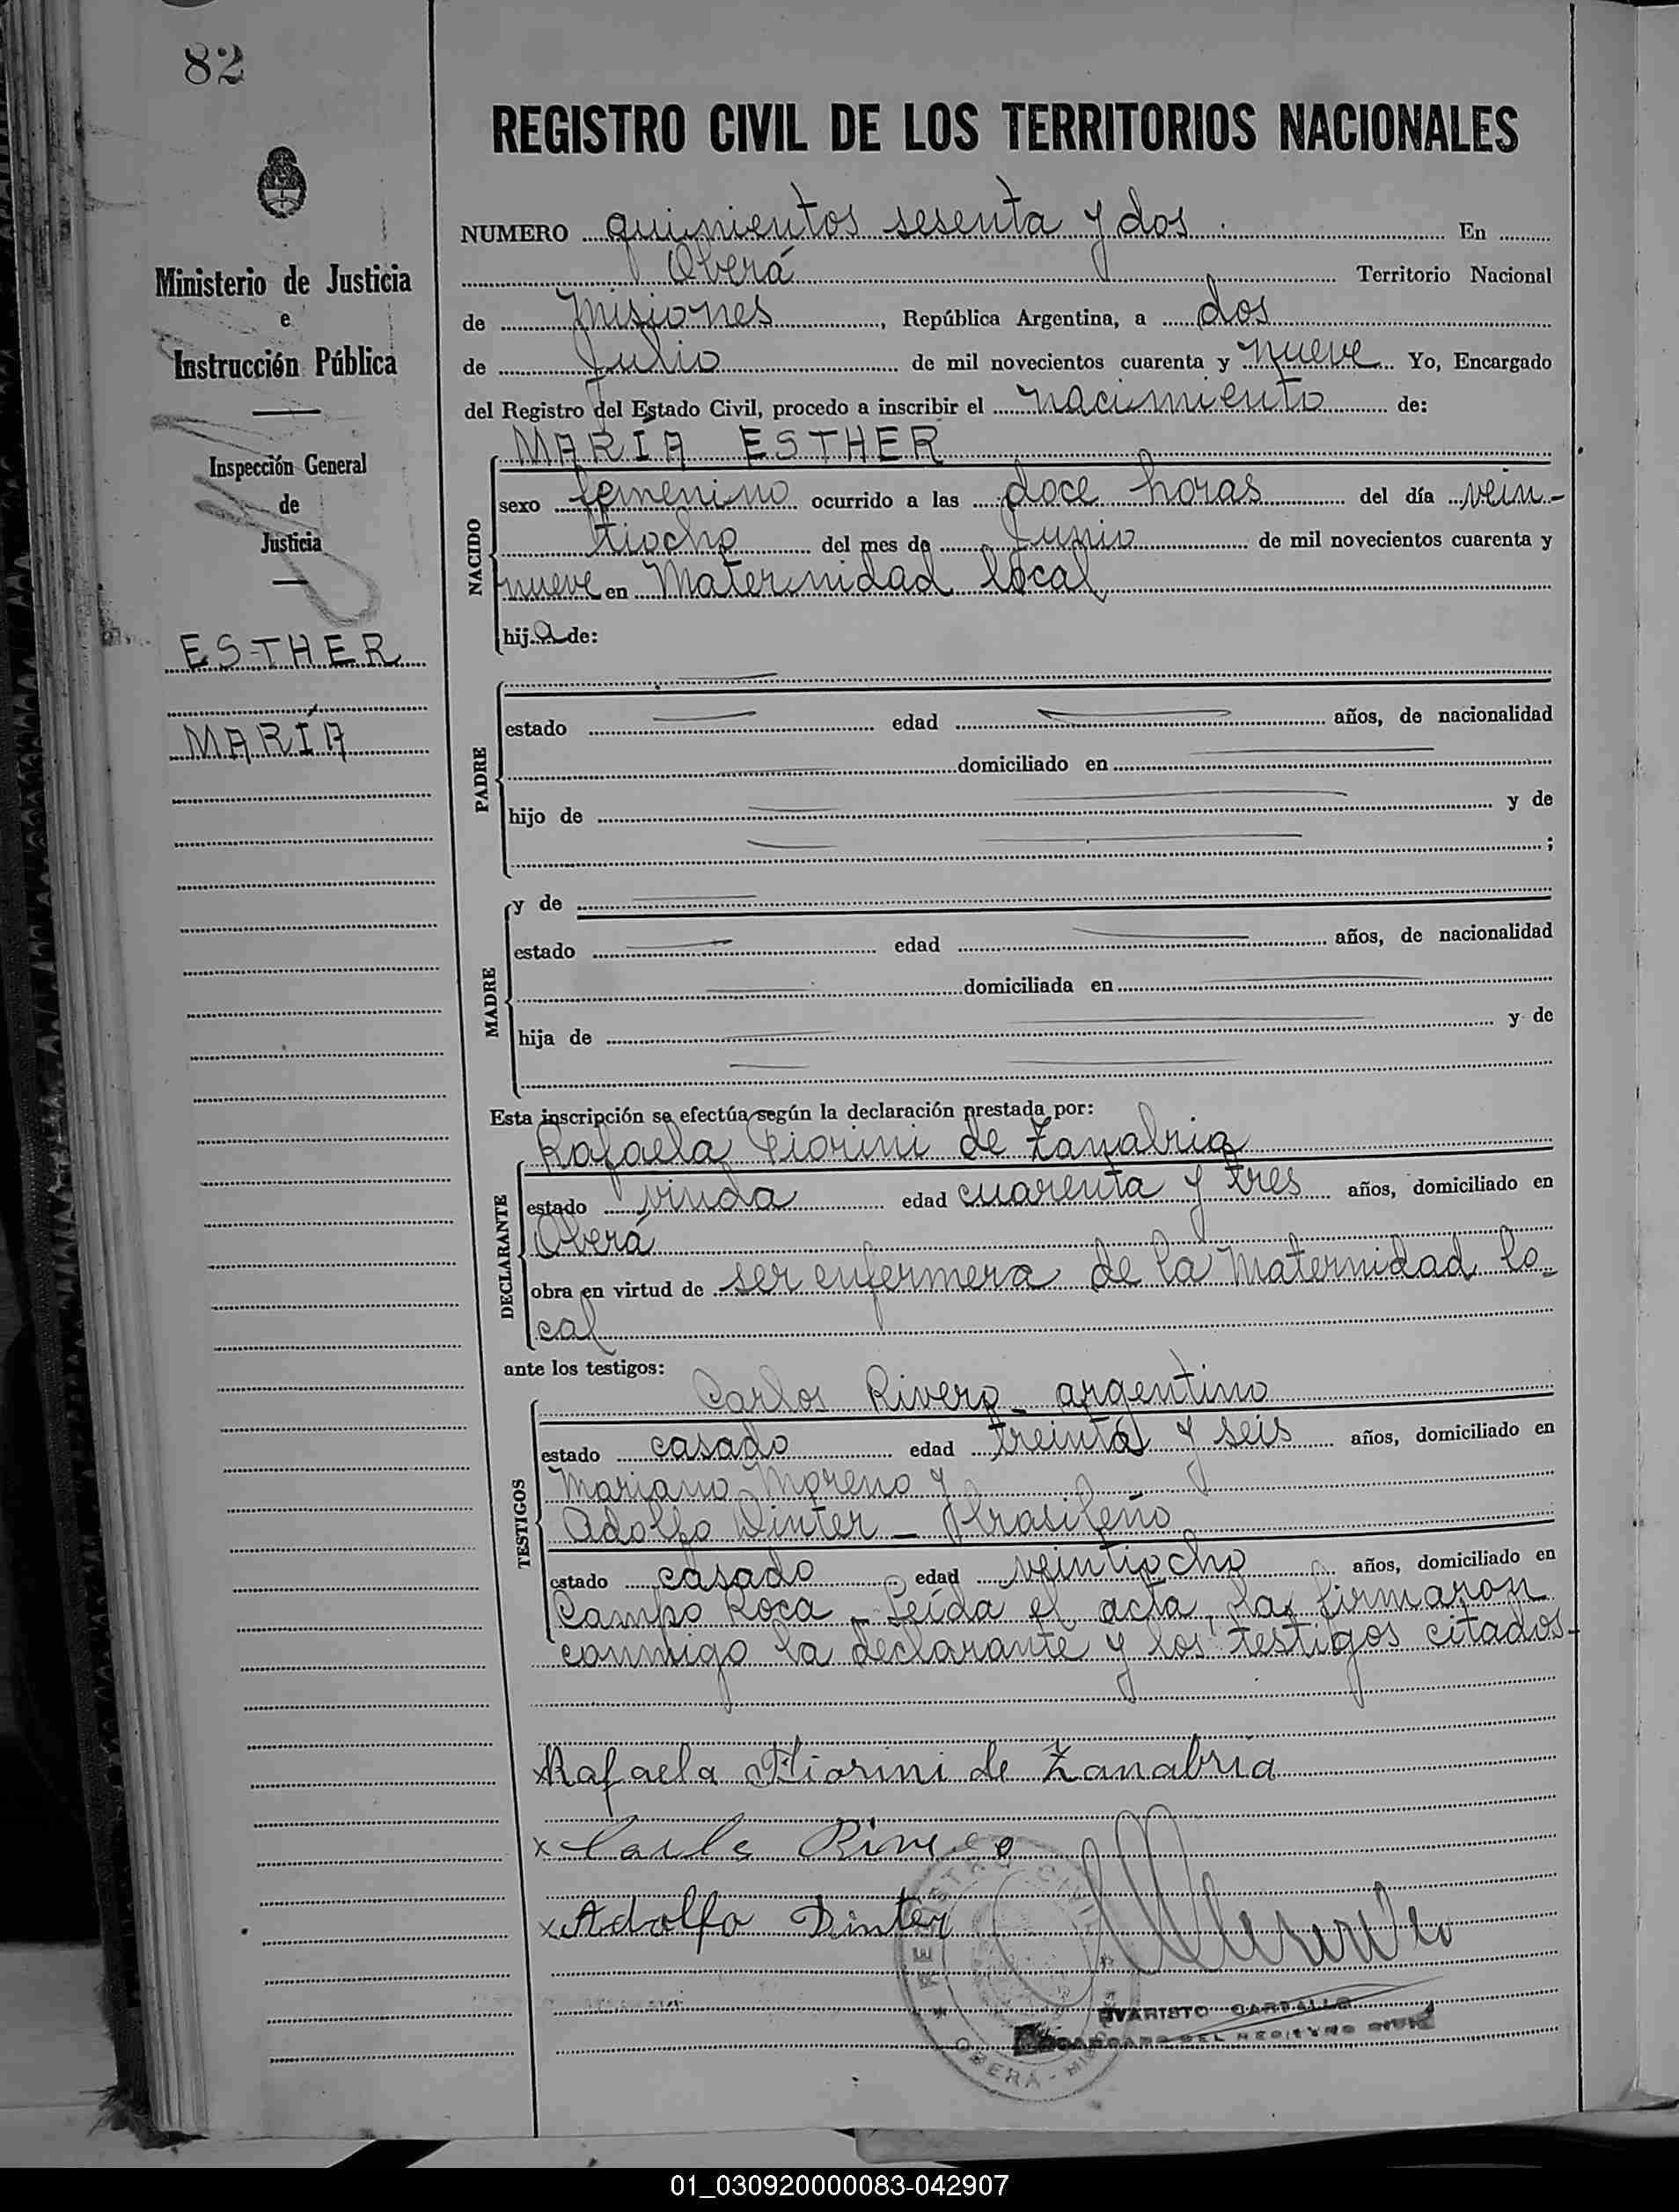 82
REGISTRO CIVIL DE LOS TERRITORIOS NACIONALES
Ministerio de Justicia
e
Instrucción Pública
Inspección General
de
Justicia
ESTHER
MARÍA
NUMERO quinientos sesenta y dos. En
Oberá Territorio Nacional
de Misiones, República Argentina, a dos
de Julio de mil novecientos cuarenta y nueve Yo, Encargado
del Registro del Estado Civil, procedo a inscribir el nacimiento de:
MARÍA ESTHER
NACIDO
sexo femenino ocurrido a las doce horas del día vein-
tiocho del mes de Junio de mil novecientos cuarenta y
nueve en Maternidad local
hija de:
PADRE
estado edad años, de nacionalidad
domiciliado en
hijo de y de
;
MADRE
y de
estado edad años, de nacionalidad
domiciliada en
hija de y de
Esta inscripción se efectúa según la declaración prestada por:
Rafaela Fiorini de Zanabria
DECLARANTE
estado viuda edad cuarenta y tres años, domiciliado en
Oberá
obra en virtud de ser enfermera de la Maternidad lo-
cal
ante los testigos:
Carlos Rivero - argentino
TESTIGOS
estado casado edad treinta y seis años, domiciliado en
Mariano Moreno y
Adolfo Dinter - Brasileño
estado casado edad veintiocho años, domiciliado en
Campo Roca - Leída el acta, la firmaron
conmigo la declarante y los testigos citados.
x Rafaela Fiorini de Zanabria
x Carlos Rivero
x Adolfo Dinter
REGISTRO CIVIL
OBERÁ - MISIONES
EVARISTO CARBALLO
ENCARGADO DEL REGISTRO CIVIL
01_030920000083-042907